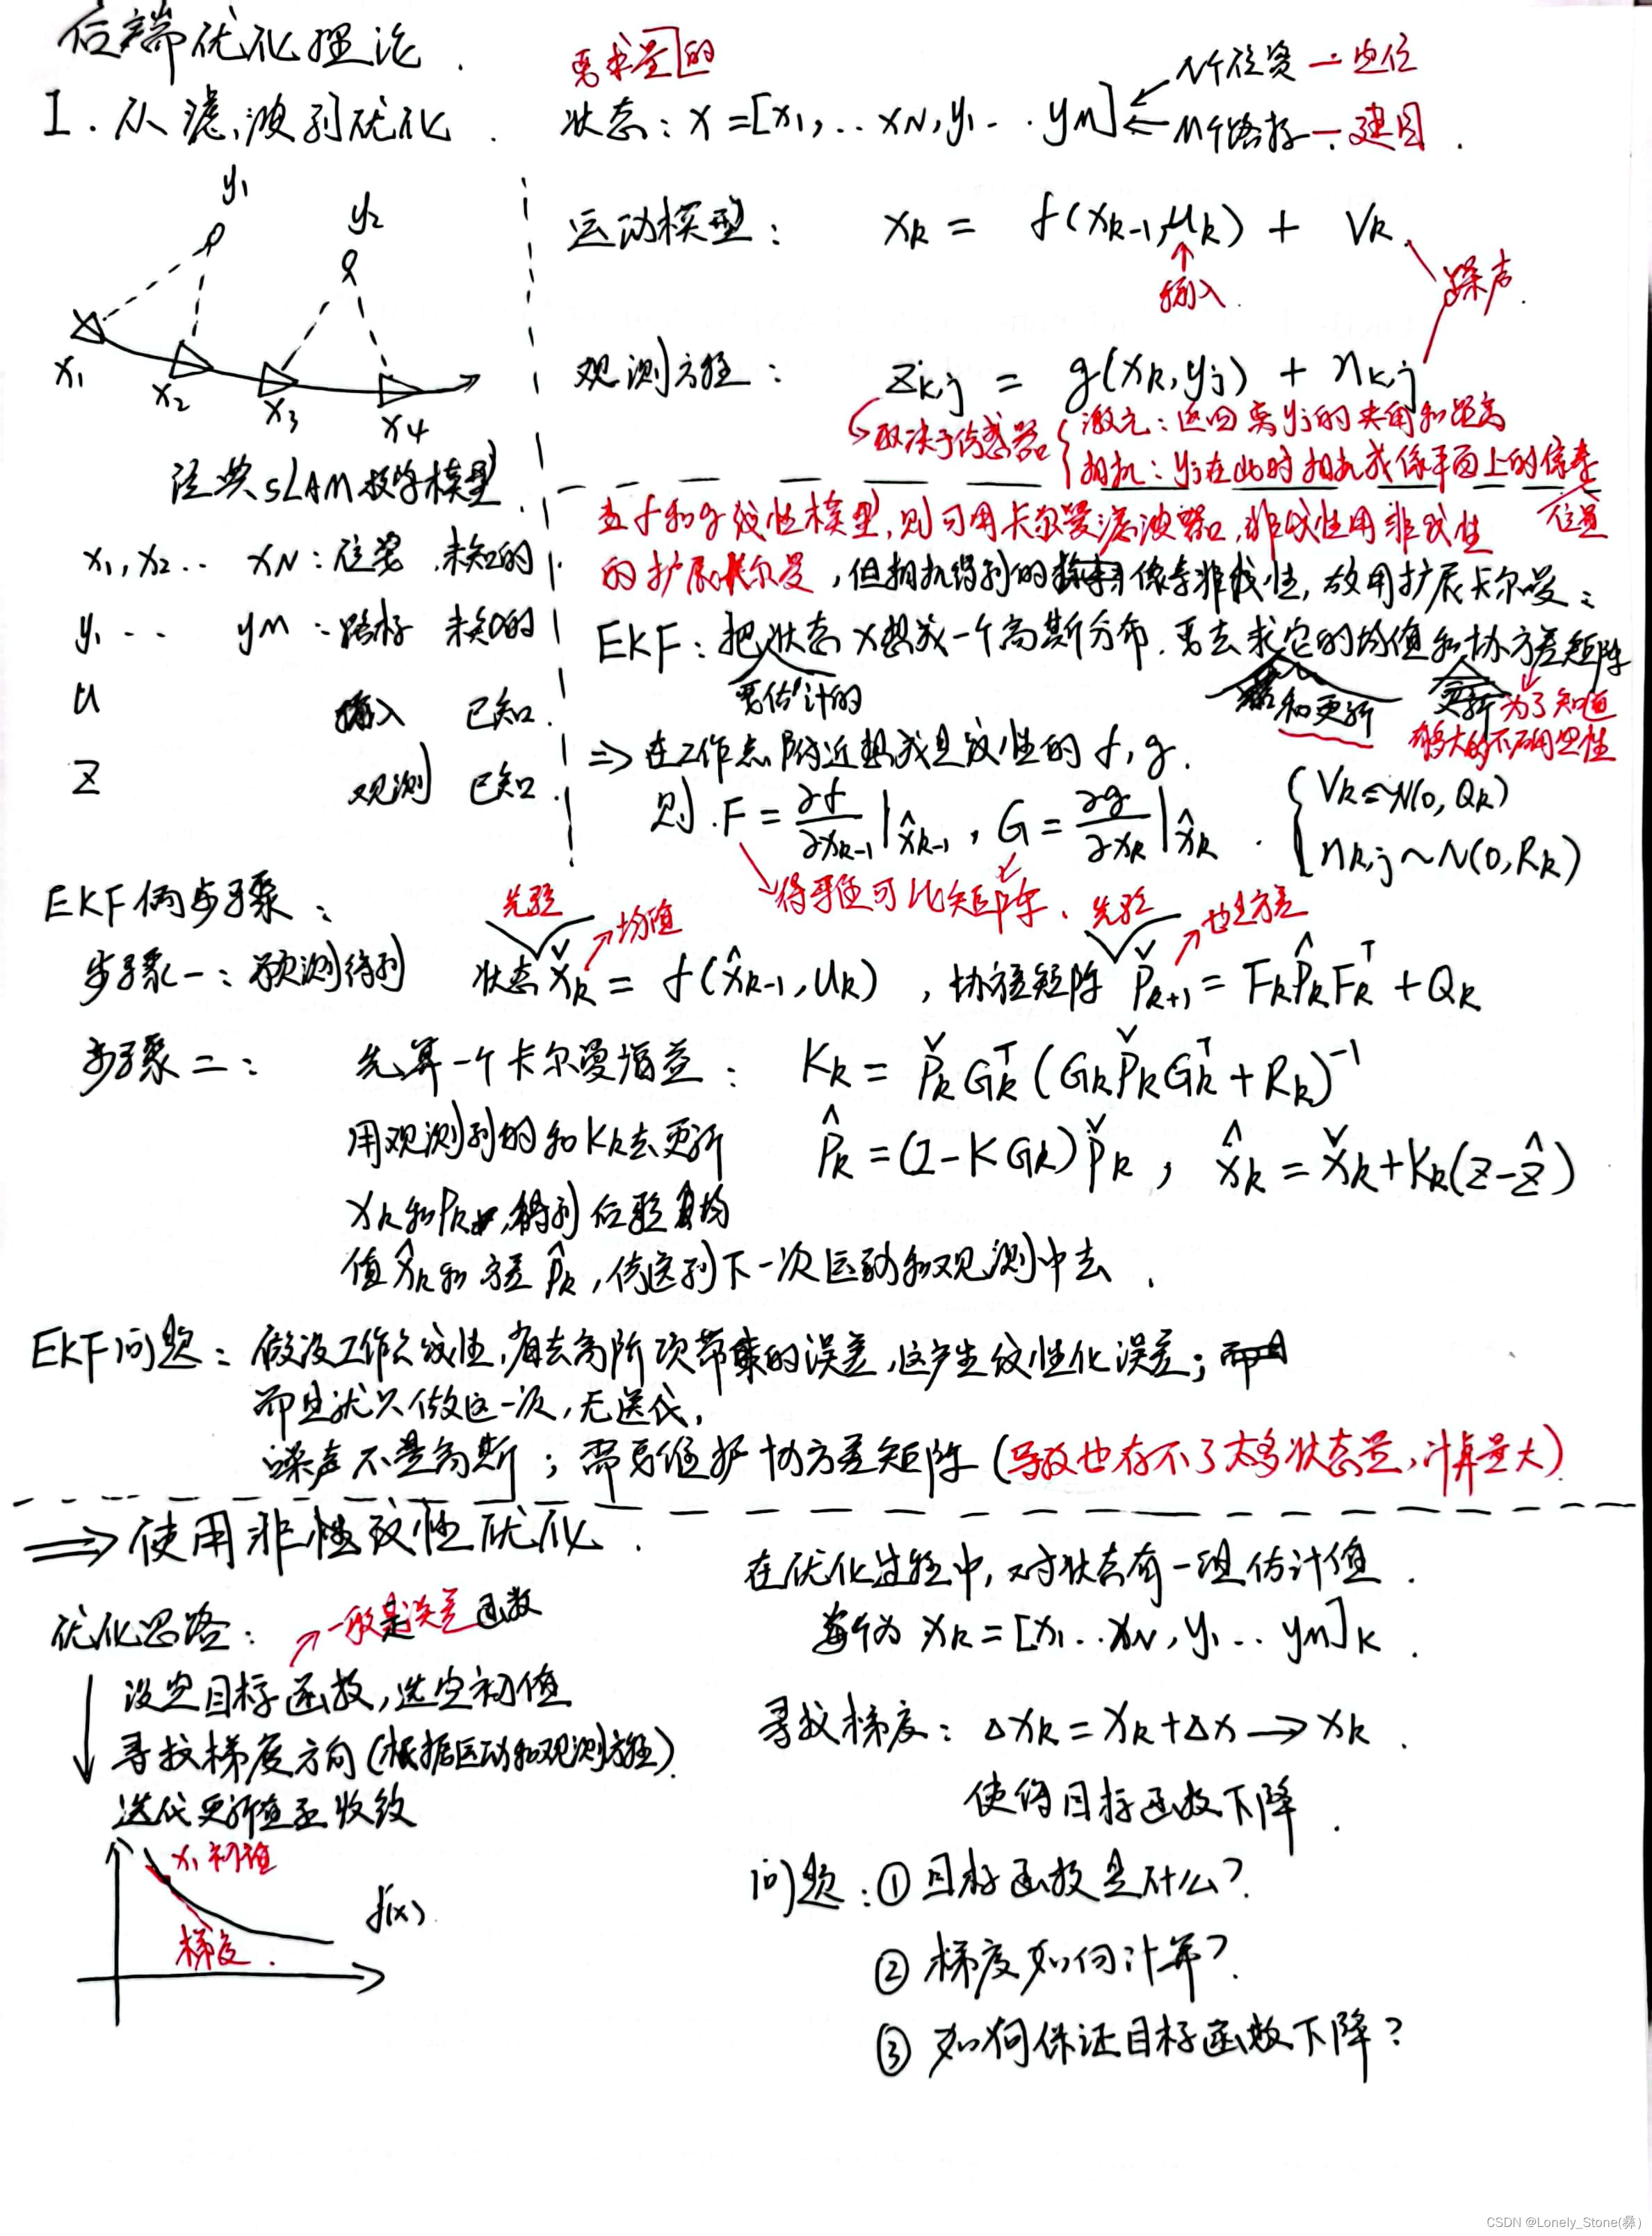 后端优化理论.
I. 从滤波到优化.
要求量的
状态: x = [x₁, .. x_N, y₁ .. y_M]
N个位姿 — 定位
M个路标 — 建图.
y₁
y₂
x₁
x₂
x₃
x₄
运动模型: x_k = f(x_{k-1}, u_k) + v_k.
输入.
噪声.
观测方程: z_{k,j} = g(x_k, y_j) + n_{k,j}
取决于传感器
激光: 返回离yj的夹角和距离
相机: yj在此时相机成像平面上的像素
位置
经典SLAM数学模型.
x₁, x₂ .. x_N: 位姿 未知的
y₁ .. y_M: 路标 未知的
u 输入 已知.
z 观测 已知.
若f和g线性模型, 则可用卡尔曼滤波器, 非线性用非线性
的扩展卡尔曼, 但相机得到的像素非线性, 故用扩展卡尔曼:
EKF: 把状态x想成一个高斯分布. 要去求它的均值和协方差矩阵
要估计的
和更新
更新
为了知道
多大的不确定性
⇒ 在工作点附近想成是线性的 f, g.
则. F = ∂f/∂x_{k-1} | x̂_{k-1}, G = ∂g/∂x_k | x̂_k.
{ v_k ~ N(0, Q_k)
n_{k,j} ~ N(0, R_k)
得雅可比矩阵.
EKF俩步骤:
先验
均值
先验
步骤一: 预测得到 状态 x̌_k = f(x̂_{k-1}, u_k), 协方差矩阵 P̌_{k+1} = F_k P̂_k F_k^T + Q_k
步骤二: 先算一个卡尔曼增益: K_k = P̌_k G_k^T (G_k P̌_k G_k^T + R_k)^{-1}
用观测到的和K_k去更新 P̂_k = (I - K G_k) P̌_k, x̂_k = x̌_k + K_k(z - ẑ)
x_k和P_k, 得到后验均
值x̂_k和方差P̂_k, 传送到下一次运动和观测中去.
EKF问题: 假设工作点线性, 省去高阶项带来的误差, 这产生线性化误差;
而且就只做这一次, 无迭代,
噪声不是高斯; 需要维护协方差矩阵 (导致也存不了太多状态量, 计算量大)
⇒ 使用非线性优化.
优化思路:
一般是误差函数
设定目标函数, 选定初值
寻找梯度方向 (根据运动和观测方程).
迭代更新直至收敛
x₁初值
梯度.
f(x).
在优化过程中, 对状态有一组估计值.
x_k = [x₁ .. x_N, y₁ .. y_M]_k.
寻找梯度: Δx_k = x_k + Δx → x_k.
使得目标函数下降.
问题: ① 目标函数是什么?
② 梯度如何计算?
③ 如何保证目标函数下降?
CSDN @Lonely_Stone(彝)